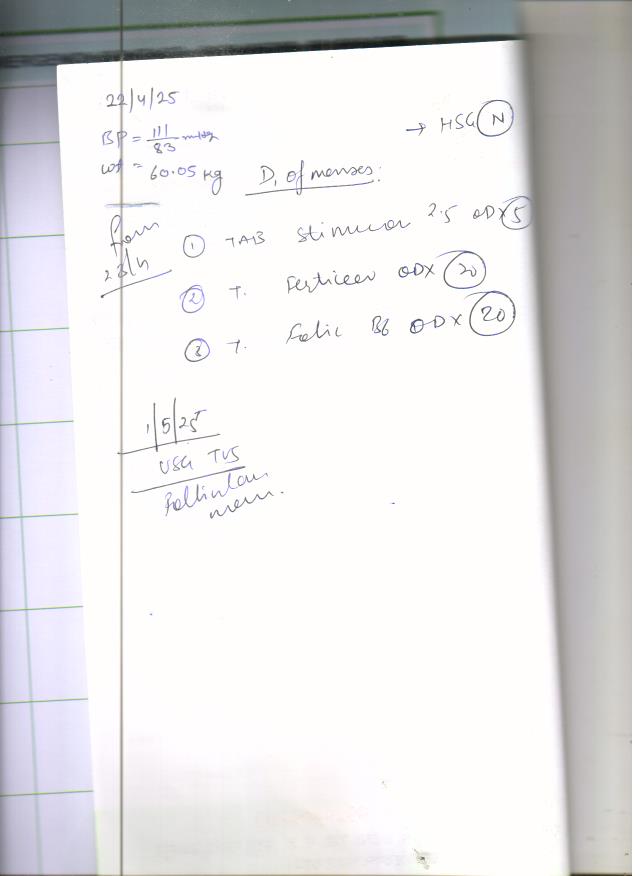 22/4/25
BP = 111/83 mmHg
→ HSG (N)
wt = 60.05 kg
D, of menses:
from 23/4
① TAB 2.5 OD x 5
② T. OD x 20
③ T. Folic B6 OD x 20
1/5/25
USG TVS
Follicular